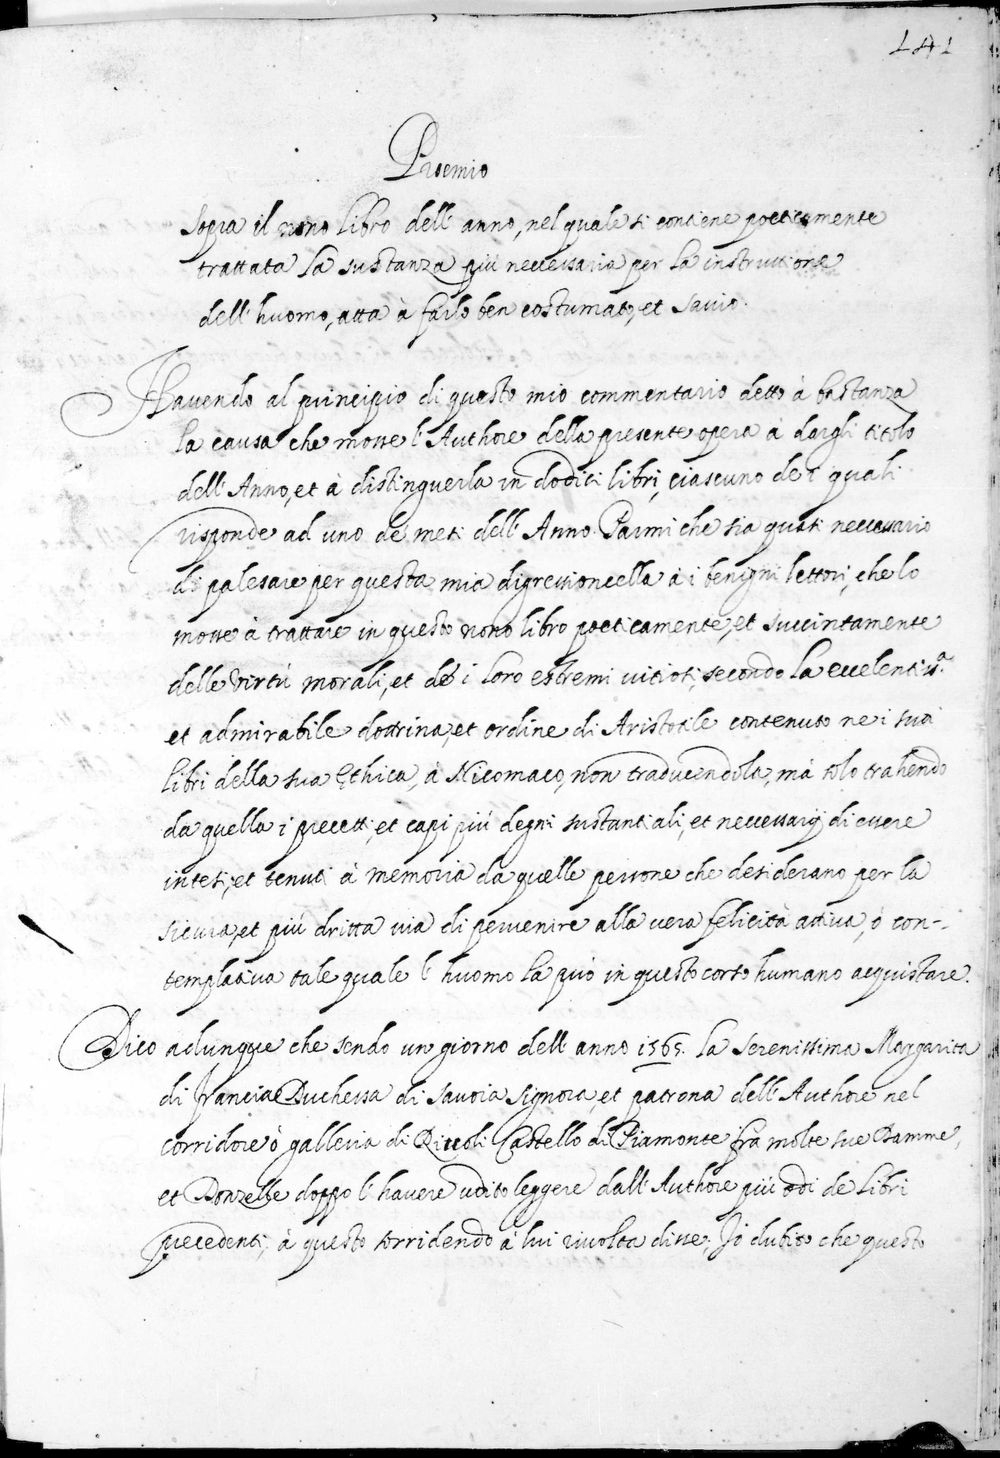 141
Proemio
Sopra il nono libro dell' anno, nel quale si contiene poeticamente
trattata la sustanza più neccessaria per la instruttione
dell' huomo, atta à farlo ben costumato, et savio.
Havendo al principio di questo mio commentario detto à bastanza
la causa che mosse l' Authore della presente opera a dargli titolo
dell' Anno, et à distinguerla in dodici libri, ciascuno de i quali
risponde ad uno de' mesi dell' Anno. Parmi che sia quasi neccessario
di palesare per questa mia digressioncella à i benigni lettori, che lo
mosse à trattare in questo nono libro poeticamente, et succintamente
delle virtù morali, et de i loro estremi vitiosi, secondo la eccelentiss.a
et admirabile dottrina, et ordine di Aristotile contenuto ne i suoi
libri della sua Ethica, à Nicomaco, non traducendola, mà solo trahendo
da quella i precetti, et capi più degni sustantiali, et neccessarij di essere
intesi, et tenuti à memoria da quelle persone che desiderano per la
sicura, et più dritta via di pervenire alla vera felicità attiva, ò con-
templativa tale quale l' huomo la può in questo corso humano acquistare.
Dico adunque che sendo un giorno dell' anno 1565. la Serenissima Margarita
di Francia Duchessa di Savoia signora, et patrona dell' Authore nel
corridore ò galleria di Rivoli Castello di Piamonte frà molte sue Damme,
et Donzelle doppo l' havere udito leggere dall' Authore più odi de' libri
precedenti, à questo sorridendo à lui rivolta disse, Jo dubito che questo